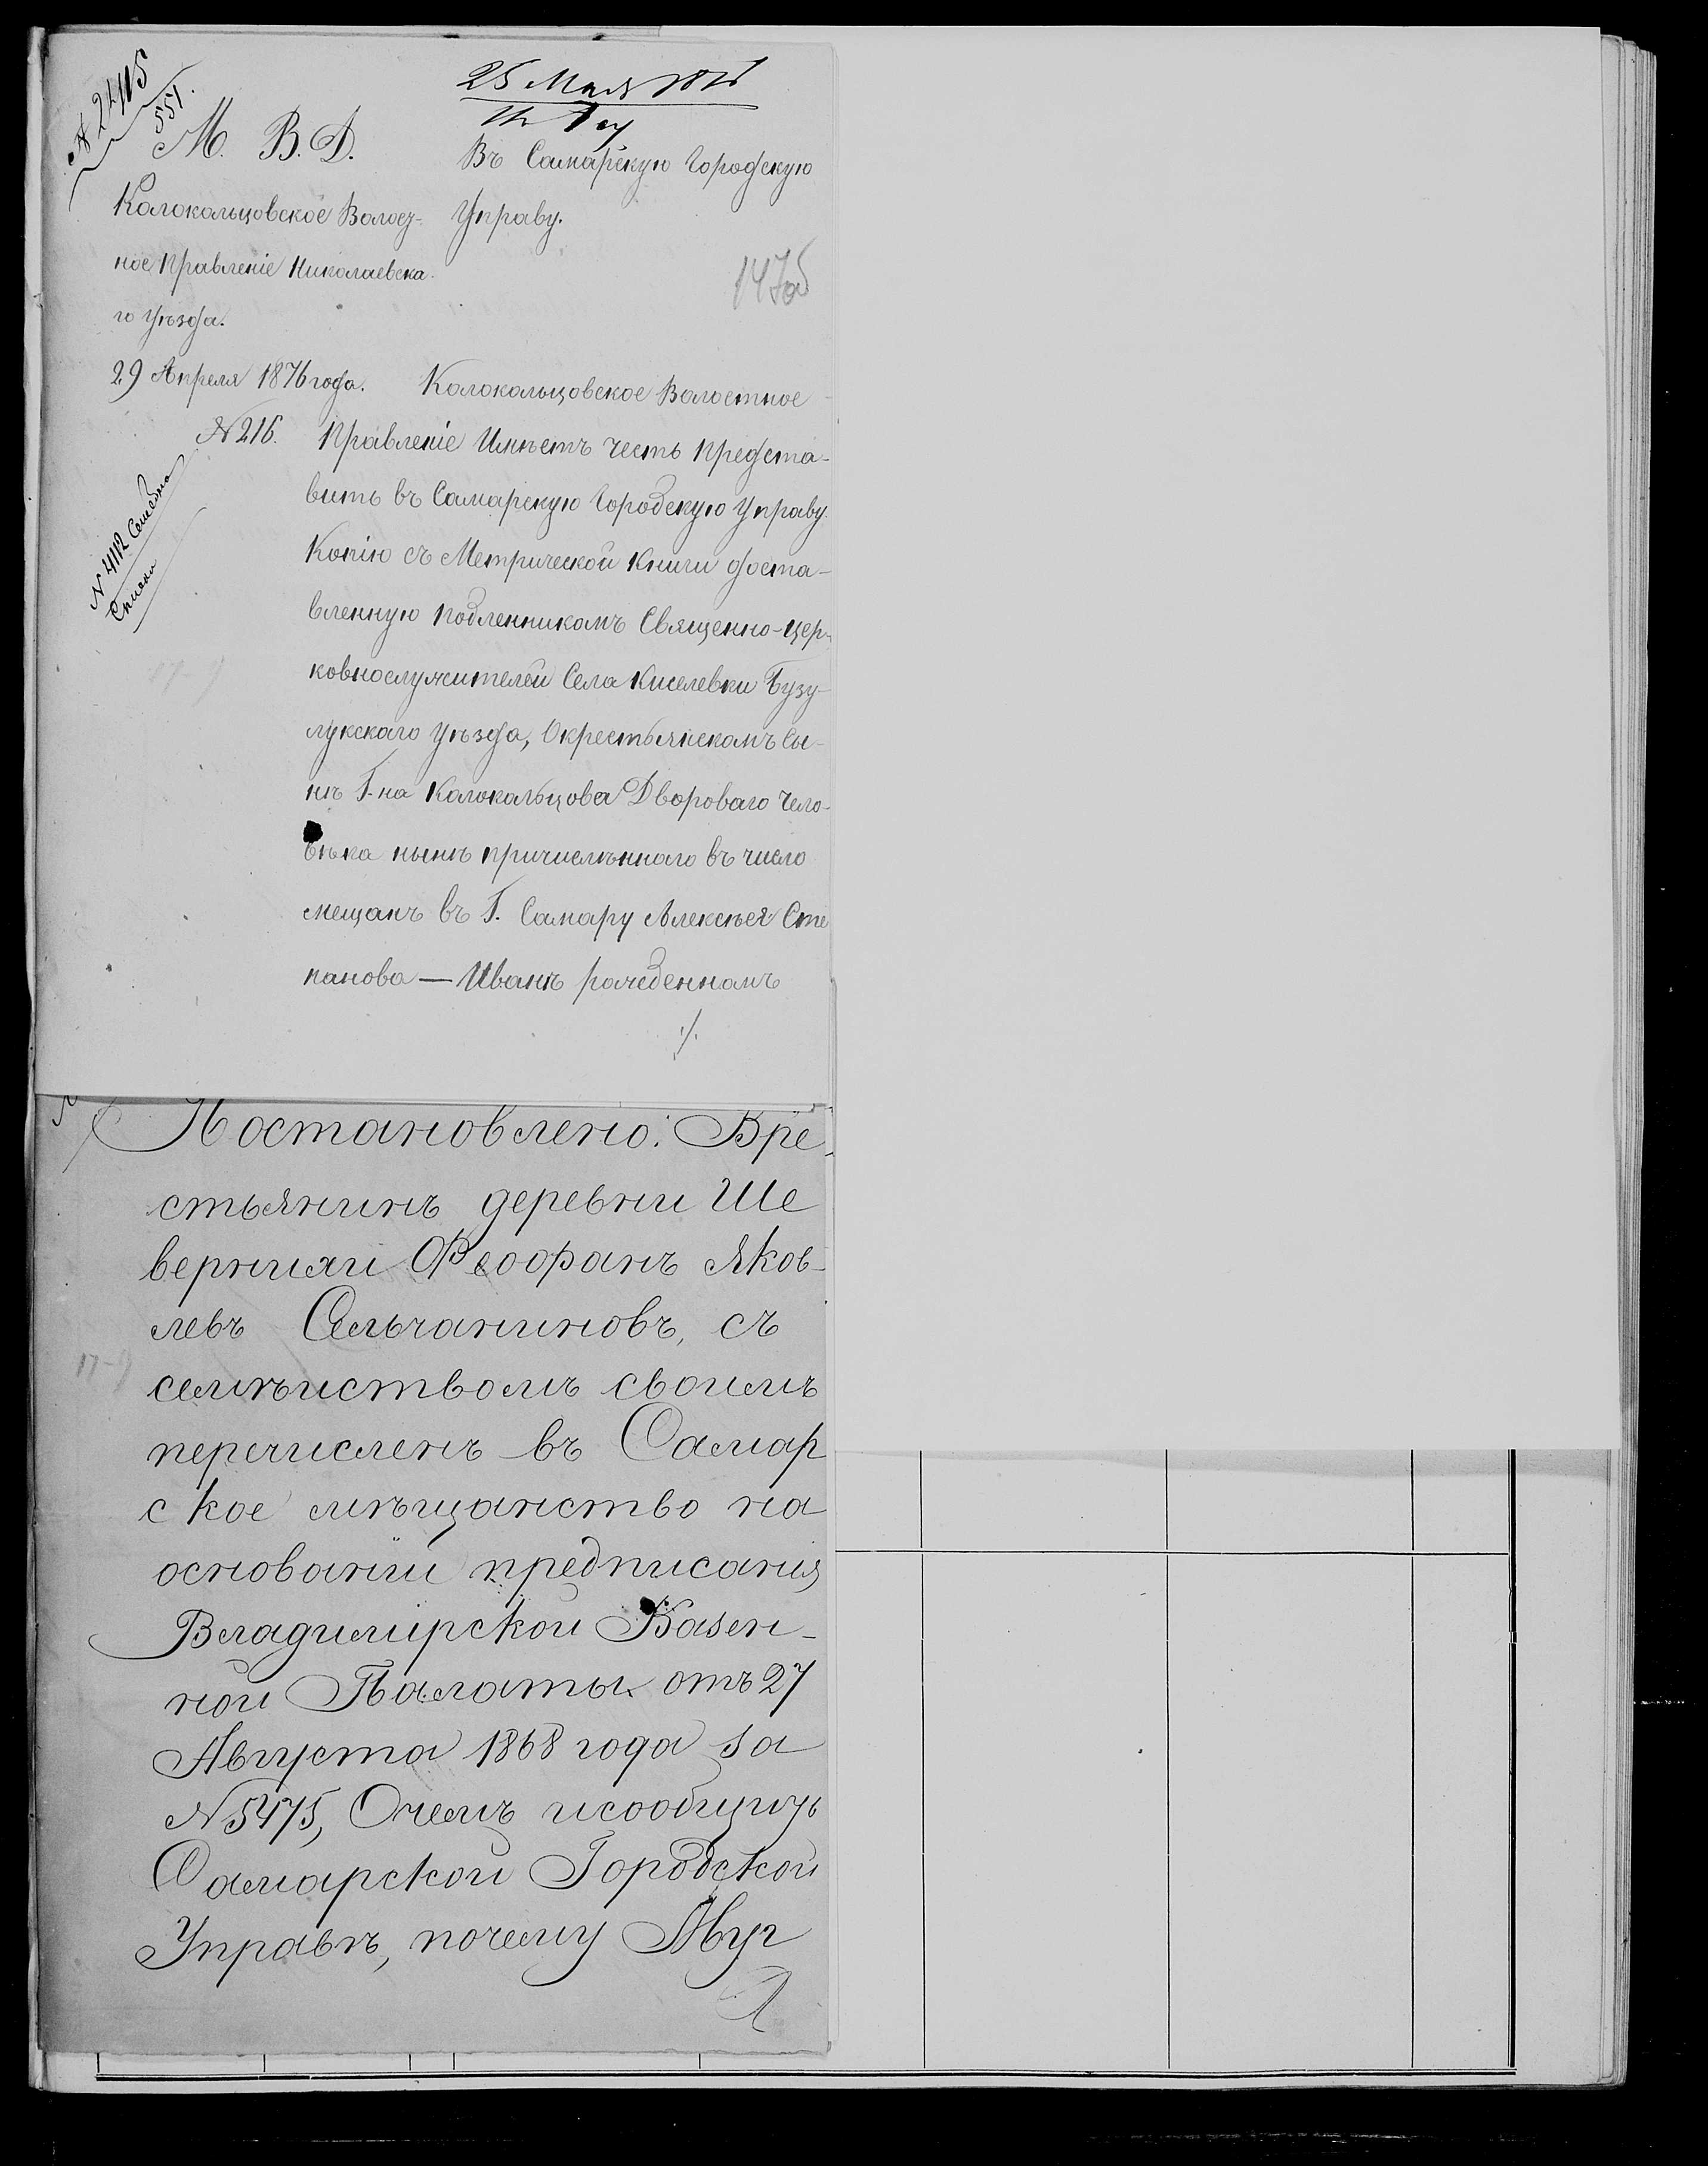 № 2415
551.
25 Мая 1876
М. В. Д.
Въ Самарскую Городскую
Управу.
Колокольцовское Волост-
ное Правленіе Николаевска-
го Уѣзда.
147об
29 Апреля 1876 года.
№ 216.
№ 4112 Семейна
Списки
Колокольцовское Волостное
Правленіе Имѣетъ честь предста-
вить въ Самарскую Городскую Управу
Копію съ Метрической Книги доста-
вленную подленникомъ Священно-цер-
ковнослужителей Села Киселевки Бузу-
лукскаго Уѣзда, Окрестьянскомъ Сы-
нѣ Г-на Колокольцова Двороваго Чело-
вѣка нынѣ причислѣннаго въ число
мещанъ въ Г. Самару Алексѣя Сте
панова — Иванѣ рожденномъ
./.
17-9
Постановлено: Кре-
стьянинъ деревни Ше
верниги Феофанъ Яков-
левъ Сельчаниновъ, съ
семѣйствомъ своимъ
перечисленъ въ Самар
ское мѣщанство на
основаніи предписанія
Владимірской Казен-
ной Палаты отъ 27
Августа 1868 года за
№ 5475, Очемъ исообщить
Самарской Городской
Управѣ, почему Мур